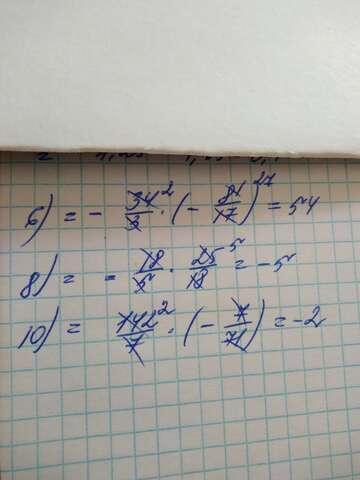 6) = - 34/3 ² · (- 81/17) ²⁷ = 54
8) = - 18/5 · 25/18 ⁵ = -5
10) = 142/7 ² · (- 7/71) = -2